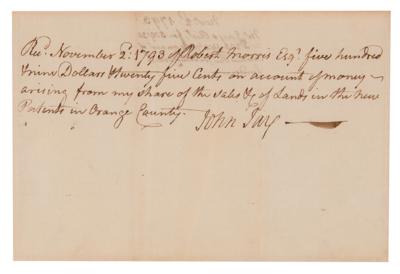 Rec.ᵈ November 2.ᵈ 1793 of Robert Morris Esq.ʳ five hundred
& nine Dollars & twenty five Cents on account of money
arising from my share of the sales &c of Lands in the new
Patents in Orange County.
John Jay